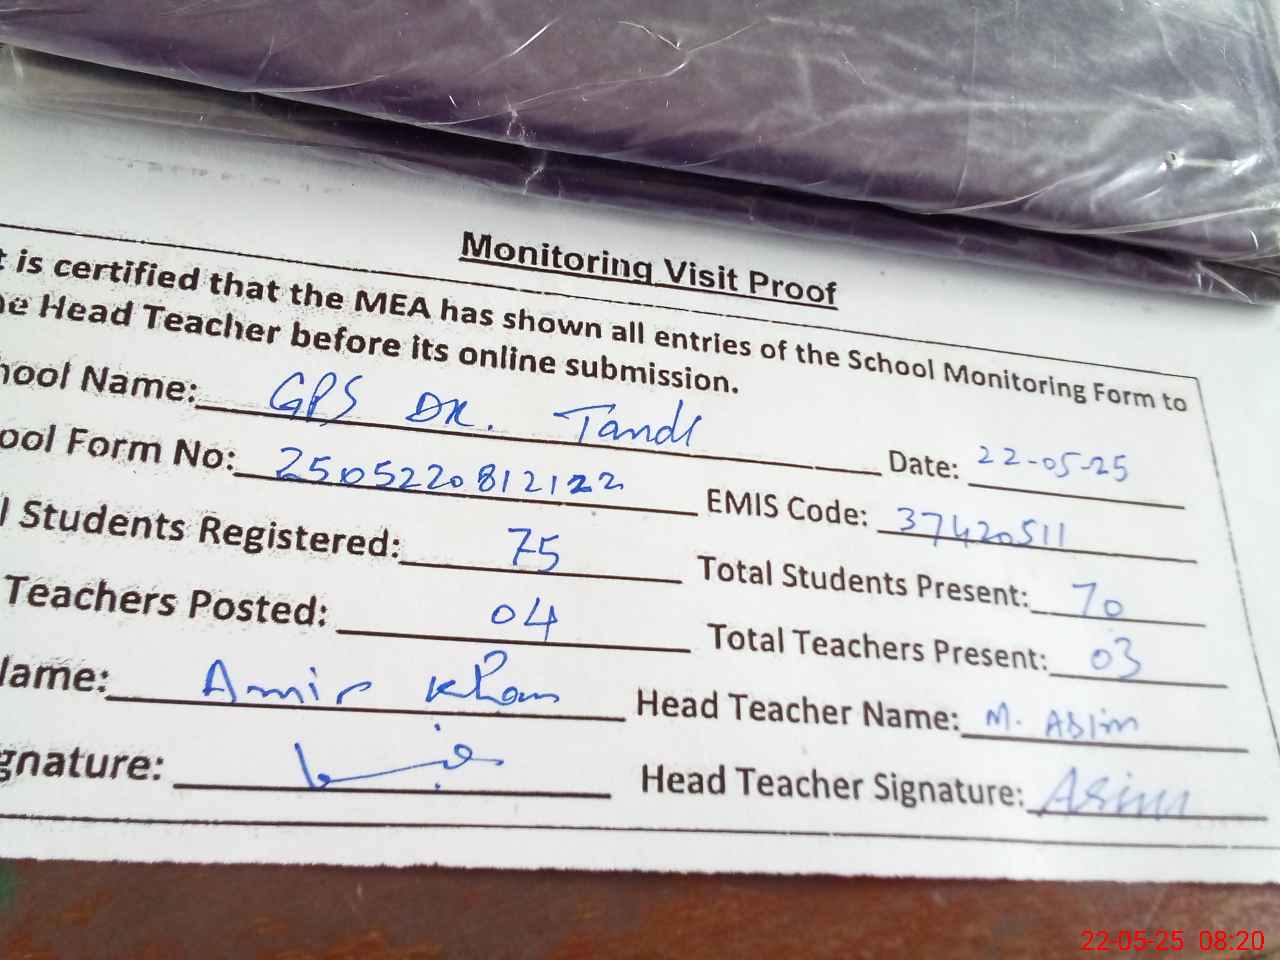 Monitoring Visit Proof
t is certified that the MEA has shown all entries of the School Monitoring Form to
he Head Teacher before its online submission.
hool Name: GPS DK. Tandl Date: 22-05-25
ool Form No: 2505220812122 EMIS Code: 37420511
l Students Registered: 75 Total Students Present: 70
Teachers Posted: 04 Total Teachers Present: 03
Name: Amir Khan Head Teacher Name: M. Asim
gnature: Head Teacher Signature: Asim
22-05-25 08:20